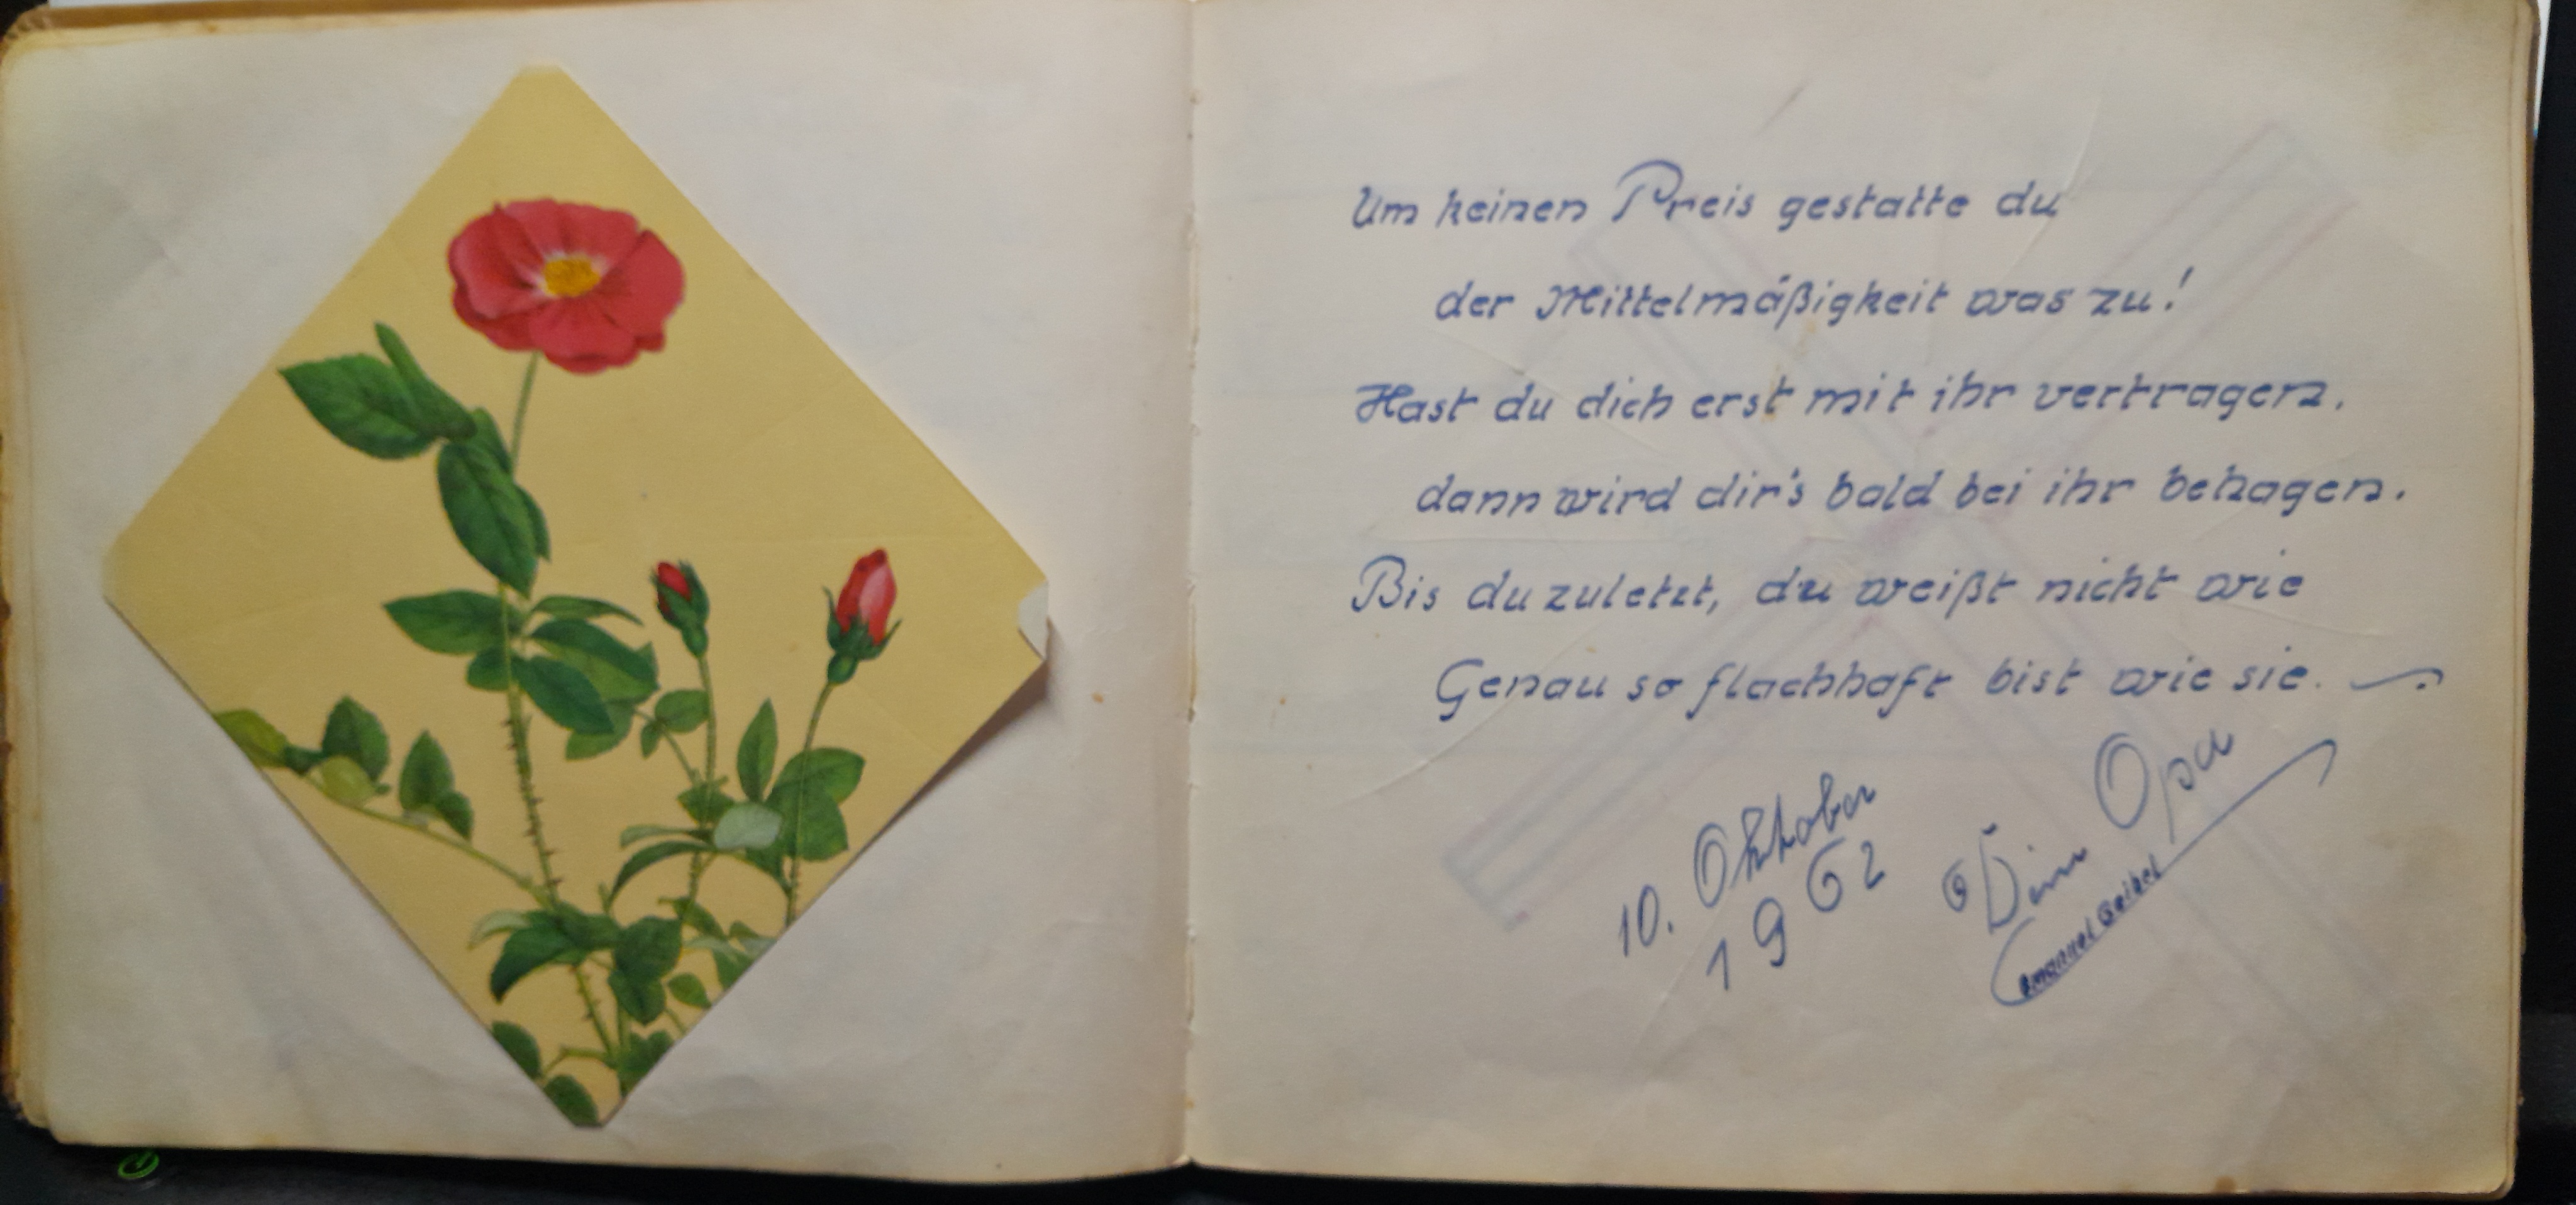 Um keinen Preis gestatte du
der Mittelmäßigkeit was zu!
Hast du dich erst mit ihr vertragen,
dann wird dir's bald bei ihr behagen.
Bis du zuletzt, du weißt nicht wie
Genau so flachhaft bist wie sie.
10. Oktober
1962
Dein Opa
Emanuel Geibel